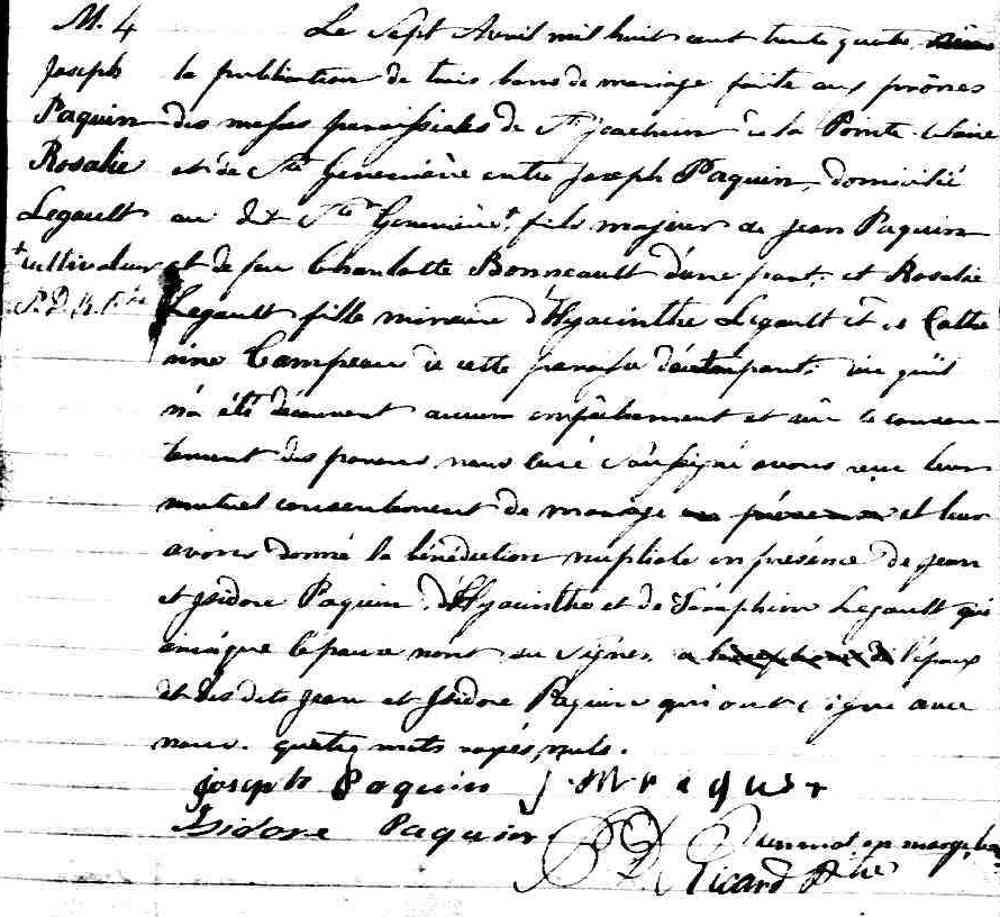 M. 4
Joseph
Paquin
Rosalie
Legault
+ cultivateur
P. D. R. Ptre
Le Sept Avril mil huit cent trente quatre
la publication de trois bans de mariage faite aux prônes
des messes paroissiales de St Joachim de la Pointe Claire
et de Ste Geneviève entre Joseph Paquin, domicilié
au dit Ste Geneviève + fils majeur de Jean Paquin
et de feu Charlotte Bonneault d'une part; et Rosalie
Legault fille mineure d'Hyacinthe Legault et de Cathe
rine Campeau de cette paroisse d'autre part; vu qu'il
n'a été découvert aucun empêchement et vu le consen-
tement des parens nous curé soussigné avons reçu leur
mutuel consentement de mariage et leur
avons donné la bénédiction nuptiale en présence de Jean
et Isidore Paquin d'Hyacinthe et de Séraphin Legault qui
ainsi que l'épouse n'ont su signer. l'époux
et des dits Jean et Isidore Paquin qui ont signé avec
nous. quatre mots rayés nuls.
Joseph Paquin
Isidore Paquin
un mot en marge bon
P D Ricard Ptre